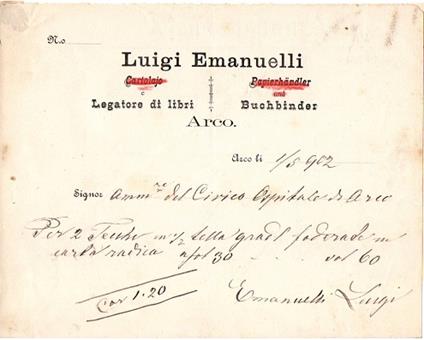 N.o
Luigi Emanuelli
Cartolajo Papierhändler
e und
Legatore di libri Buchbinder
Arco.
Arco li 1/5 902
Signor Ammre del Civico Ospitale di Arco
Per 2 in 1/2 tella foderate in
carta radica 30 60
Cor 1.20
Emanuelli Luigi